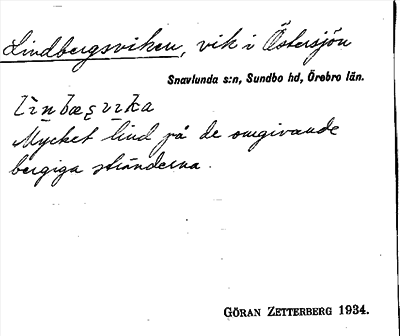 Lindbergsviken, vik i Östersjön
Snavlunda s:n, Sundbo hd, Örebro län.
Mycket lind på de omgivande
bergiga stränderna.
GÖRAN ZETTERBERG 1934.